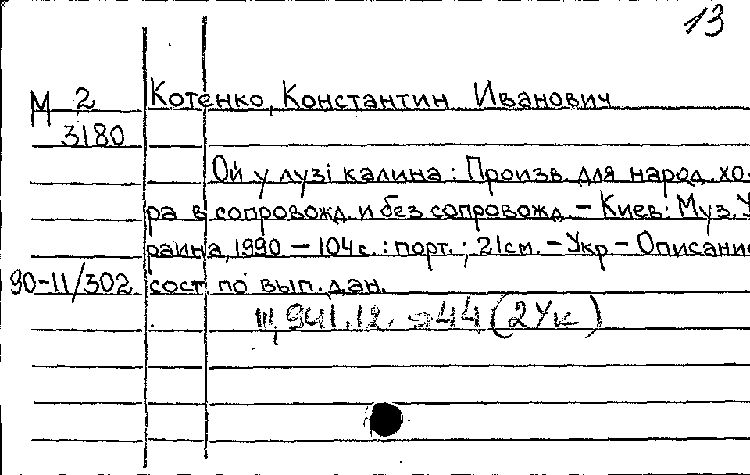 13
М 2 Котенко, Константин Иванович
3180
Ой у лузі калина : Произв. для народ. хо-
ра в сопровожд. и без сопровожд. – Киев: Муз. Ук
раина, 1990 – 104 с. : порт. ; 21 см. – Укр – Описание
90-11/302 сост по вып. дан.
Щ 941.12. я44 (2Ук)